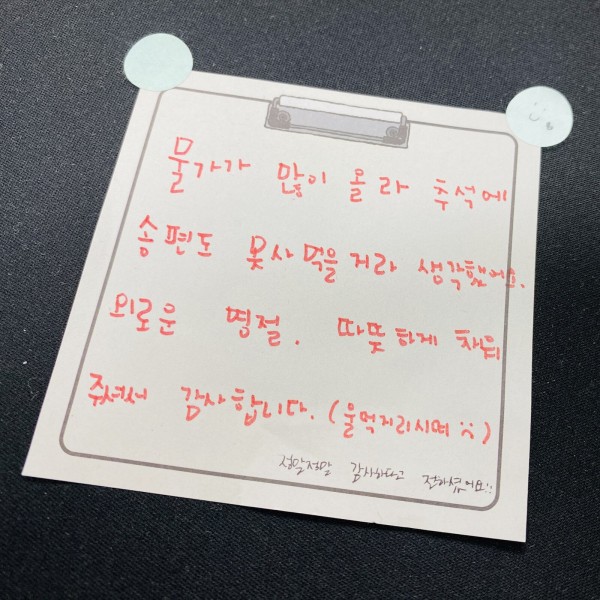 물가가 많이 올라 추석에
송편도 못사먹을거라 생각했어요.
외로운 명절. 따뜻하게 채워
주셔서 감사합니다. (울먹거리시며 :()
정말정말 감사하다고 전하셨어요!!